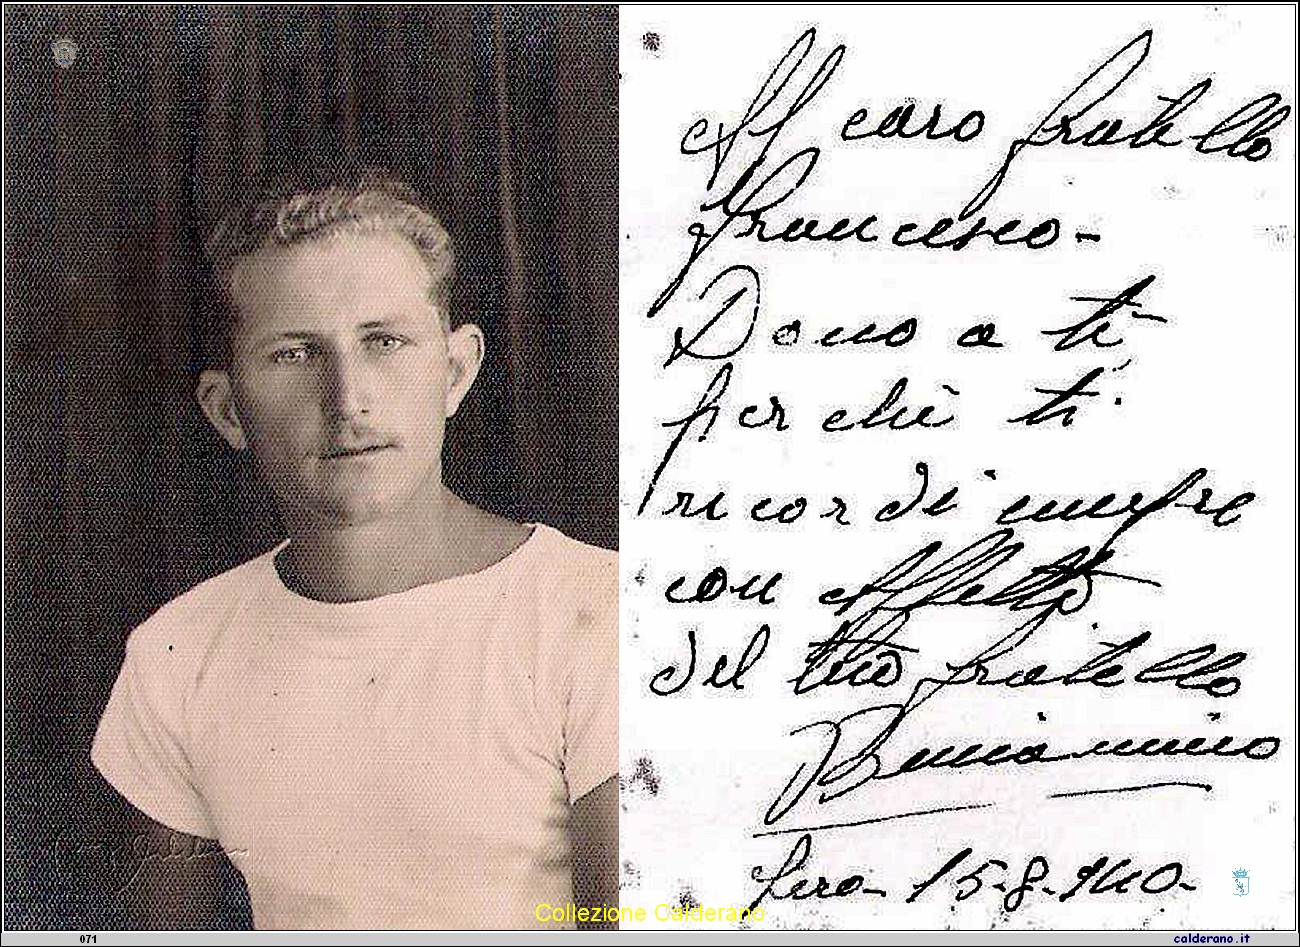 Al caro fratello
Francesco-
Dono a ti
perchè ti
ricordi sempre
con affetto
del tuo fratello
Beniamino
15-8-940-
Collezione Calderano
071
calderano.it